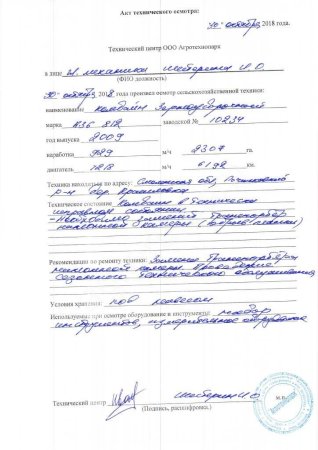 Акт технического осмотра:
30 октября 2018 года.
Технический центр ООО Агротехнопарк
в лице гл. механика Шеберстин И.О.
(ФИО должность)
30 октября 2018 года произвел осмотр сельскохозяйственной техники:
наименование Комбайн Зерноуборочный
марка 812 заводской № 10234
год выпуска 2009
наработка 929 м/ч 2307 га.
двигатель 1218 м/ч 6192 км.
Техника находиться по адресу: Смоленская обл, Починковский
р-н дер.
Техническое состояние Комбайн в технически
исправном состоянии
Необходима замена транспортёр
наклонной камеры
Рекомендации по ремонту техники: Замена транспортёра
наклонной камеры. Проведение
сезонного технического обслуживания
Условия хранения: под навесом
Используемы при осмотре оборудование и инструменты: набор
инструментов, измерительное оборудование
Технический центр Шеберстин И.О
(Подпись, расшифровка.)
М.П.